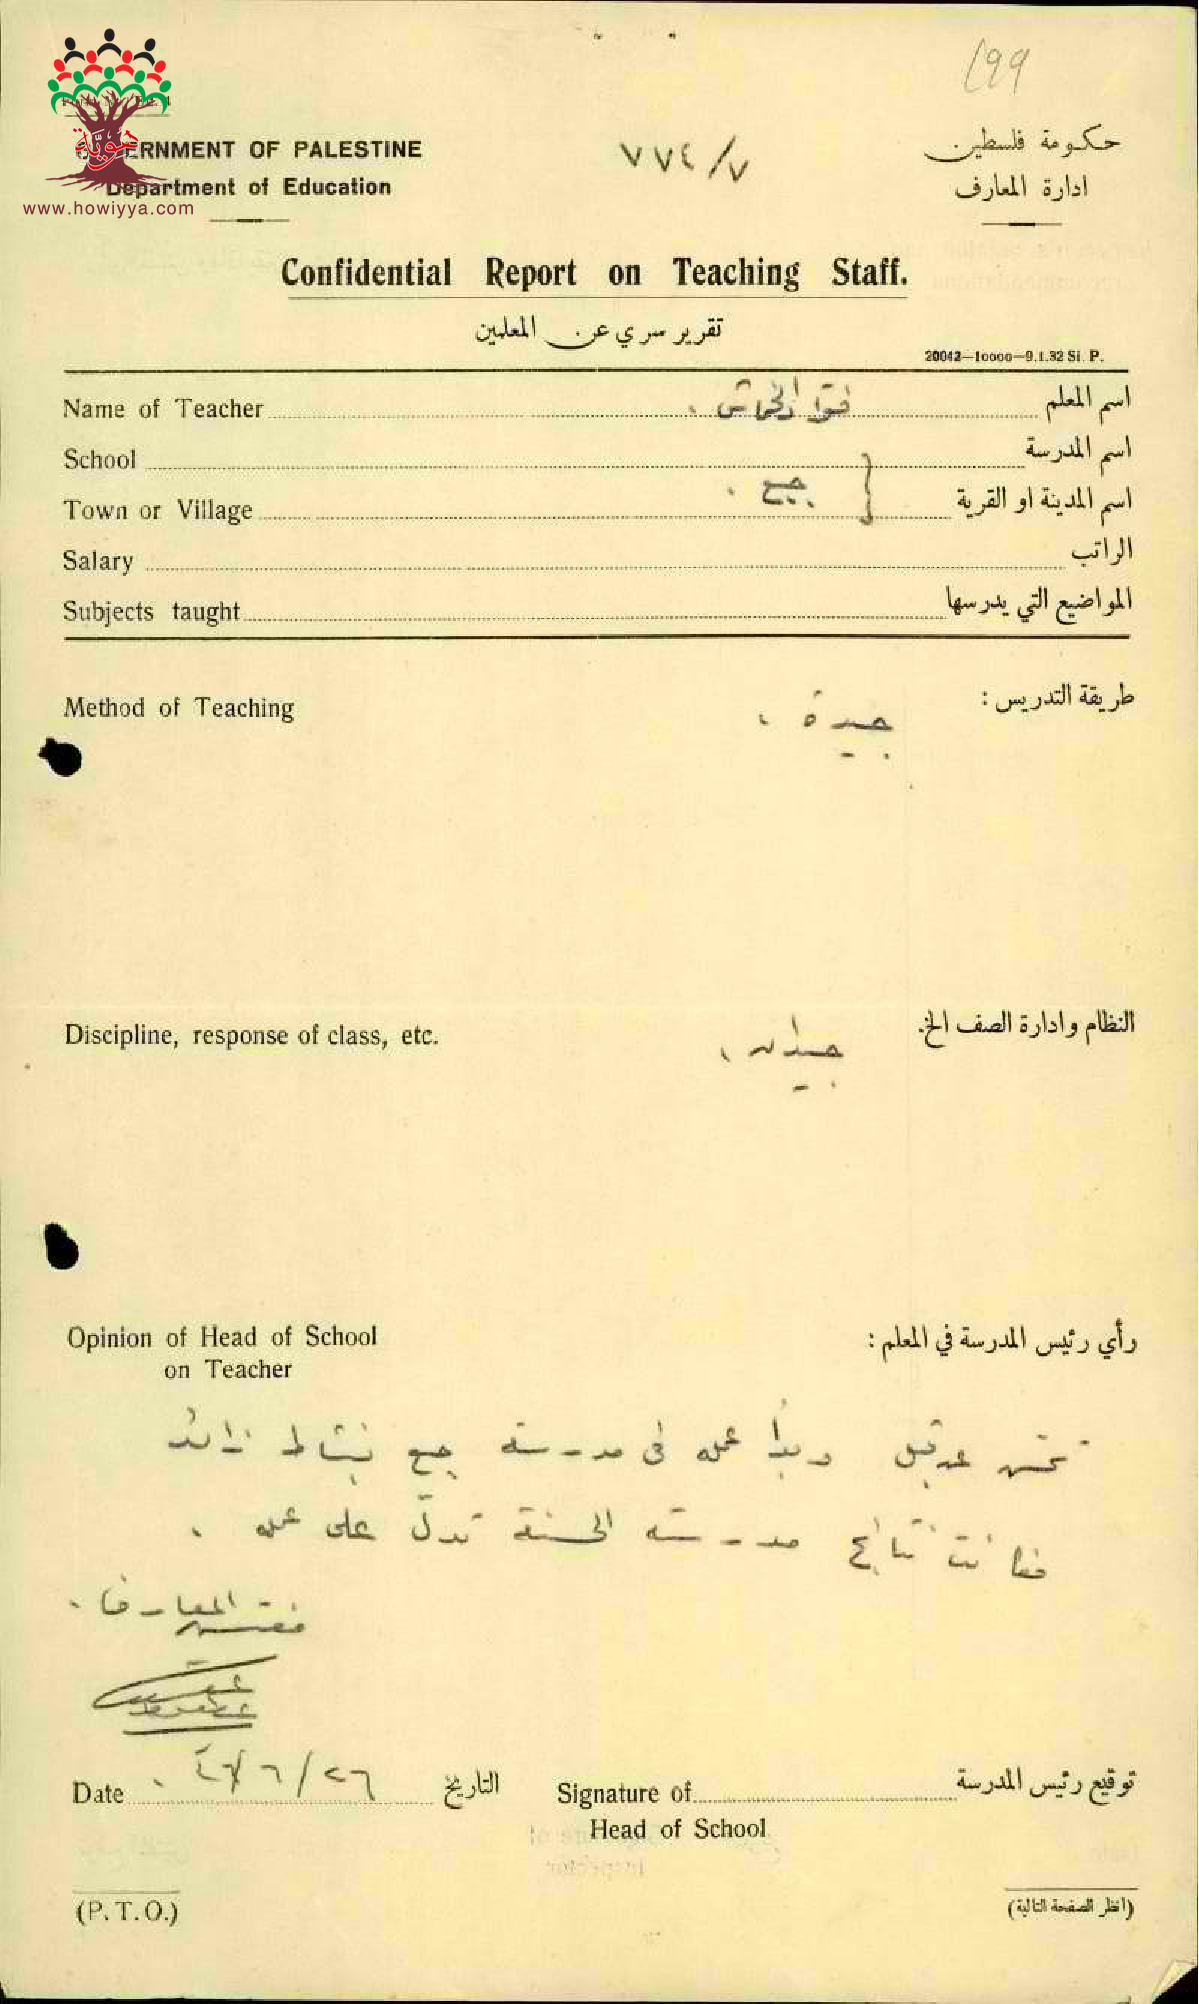 199
هوية
www.howiyya.com
GOVERNMENT OF PALESTINE
Department of Education
٧٧٤/٧
حكومة فلسطين
ادارة المعارف
Confidential Report on Teaching Staff.
تقرير سري عن المعلمين
20042—10000—9.1.32 Si. P.
Name of Teacher فؤاد الخماش . اسم المعلم
School اسم المدرسة
Town or Village جبع . اسم المدينة او القرية
Salary الراتب
Subjects taught المواضيع التي يدرسها
Method of Teaching جيدة . طريقة التدريس :
Discipline, response of class, etc. جيدان . النظام وادارة الصف الخ.
Opinion of Head of School رأي رئيس المدرسة في المعلم :
on Teacher
تحسن عن قبل وبدأ عمله في مدرسة جبع بنشاط زائد
فكانت نتائج مدرسته الحسنة تدل على عمله .
مفتش المعارف .
Date ٤٦/٦/٢٦ التاريخ Signature of توقيع رئيس المدرسة
Head of School
(P.T.O.) (انظر الصفحة التالية)